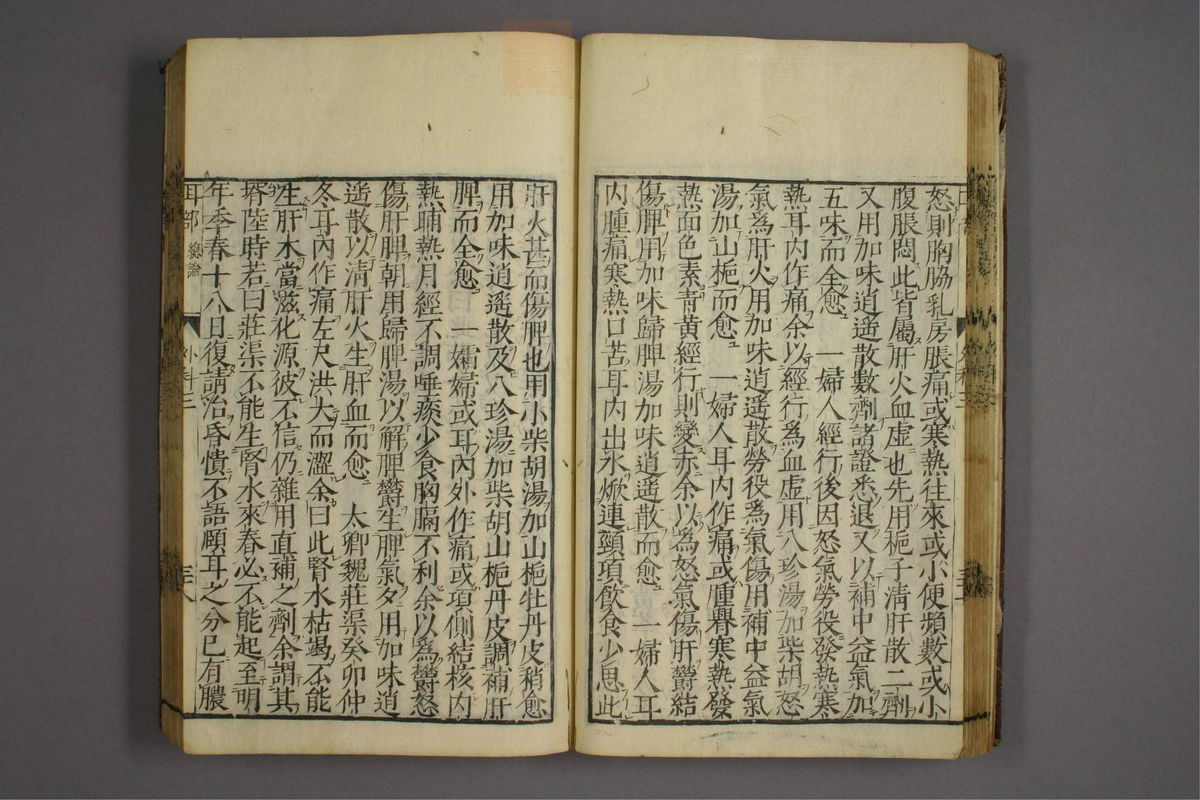 怒則胸脇乳房脹痛或寒熱往來或小便頻數或小
腹脹悶此皆屬肝火血虛也先用梔子清肝散二劑
又用加味逍遥散數劑諸證悉退又以補中益氣加
五味而全愈　一婦人經行後因怒氣勞役發熱寒
熱耳内作痛余以經行爲血虛用八珍湯加柴胡怒
氣爲肝火用加味逍遥散勞役爲氣傷用補中益氣
湯加山梔而愈　一婦人耳内作痛或腫㿈寒熱發
熱面色素青黄經行則變赤余以爲怒氣傷肝欝結
傷脾用加味歸脾湯加味逍遥散而愈　一婦人耳
内腫痛寒熱口苦耳内出水焮連頸項飲食少思此
肝火甚而傷脾也用小柴胡湯加山梔牡丹皮稍愈
用加味逍遥散及八珍湯加柴胡山梔丹皮調補肝
脾而全愈　一孀婦或耳内外作痛或項側結核内
熱晡熱月經不調唾痰少食胸膈不利余以爲欝怒
傷肝脾朝用歸脾湯以解脾欝生脾氣夕用加味逍
遥散以清肝火生肝血而愈　太卿魏莊渠癸卯仲
冬耳内作痛左尺洪大而澀余曰此腎水枯竭不能
生肝木當滋化源彼不信仍雜用直補之劑余謂其
壻陸時若曰莊渠不能生腎水來春必不能起至明
年季春十八日復請治昏憒不語頤耳之分已有膿
耳部 總論　外科三　三八